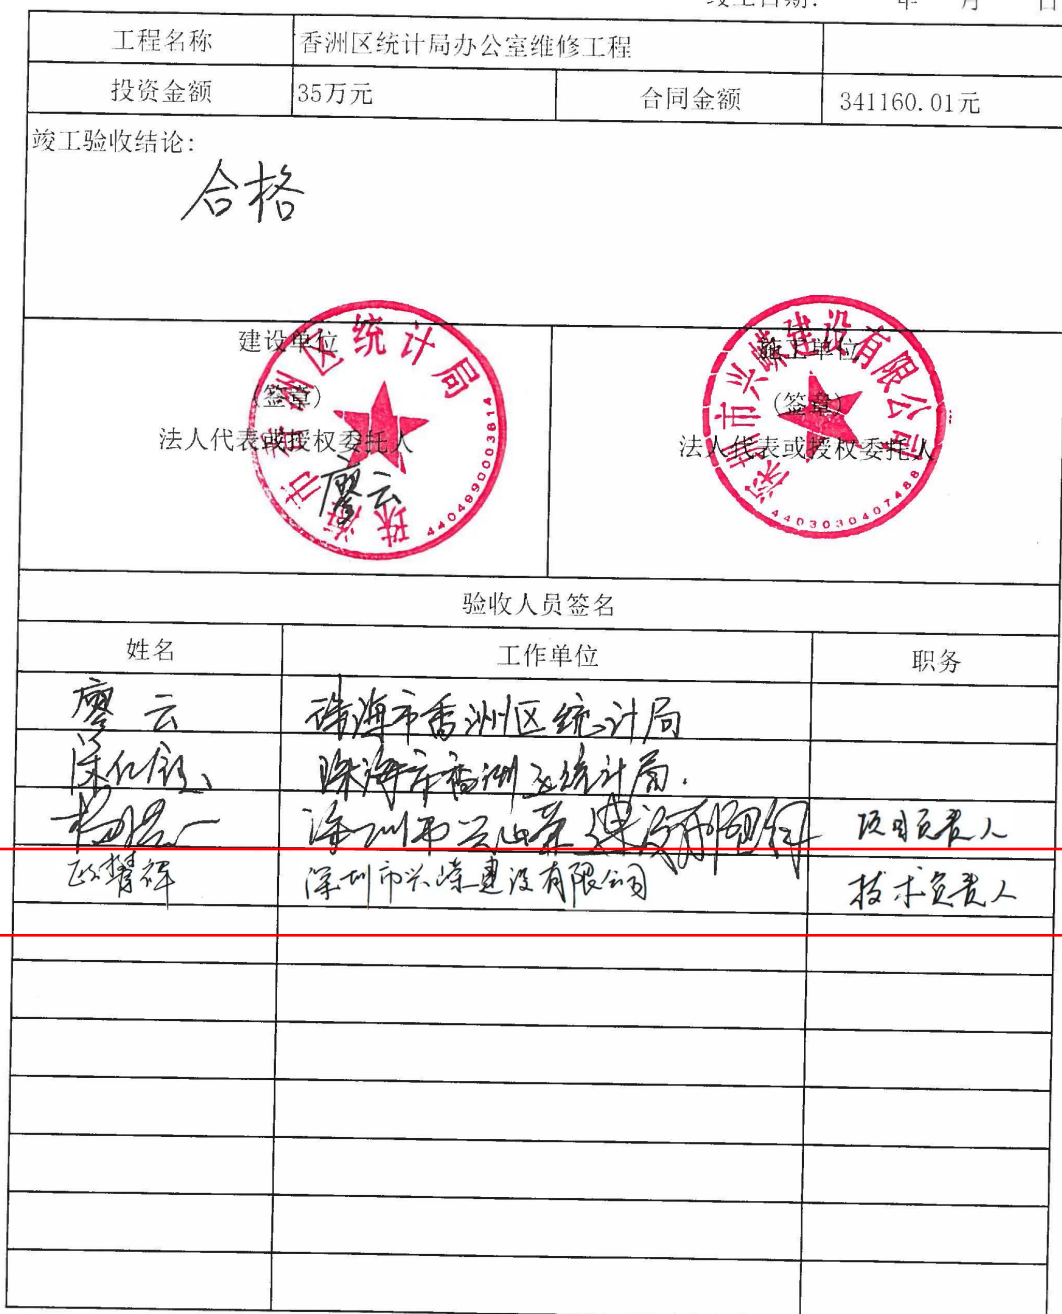 年 月 日
工程名称 香洲区统计局办公室维修工程
投资金额 35万元 合同金额 341160.01元
竣工验收结论:
合格
建设单位 施工单位
(签章) (签章)
法人代表或授权委托人 法人代表或授权委托人
廖云
珠海市香洲区统计局
4404990003814
深圳市兴嵘建设有限公司
4403030407488
验收人员签名
姓名 工作单位 职务
廖云 珠海市香洲区统计局
珠海市香洲区统计局.
深圳市兴嵘建设有限公司 项目负责人
深圳市兴嵘建设有限公司 技术负责人